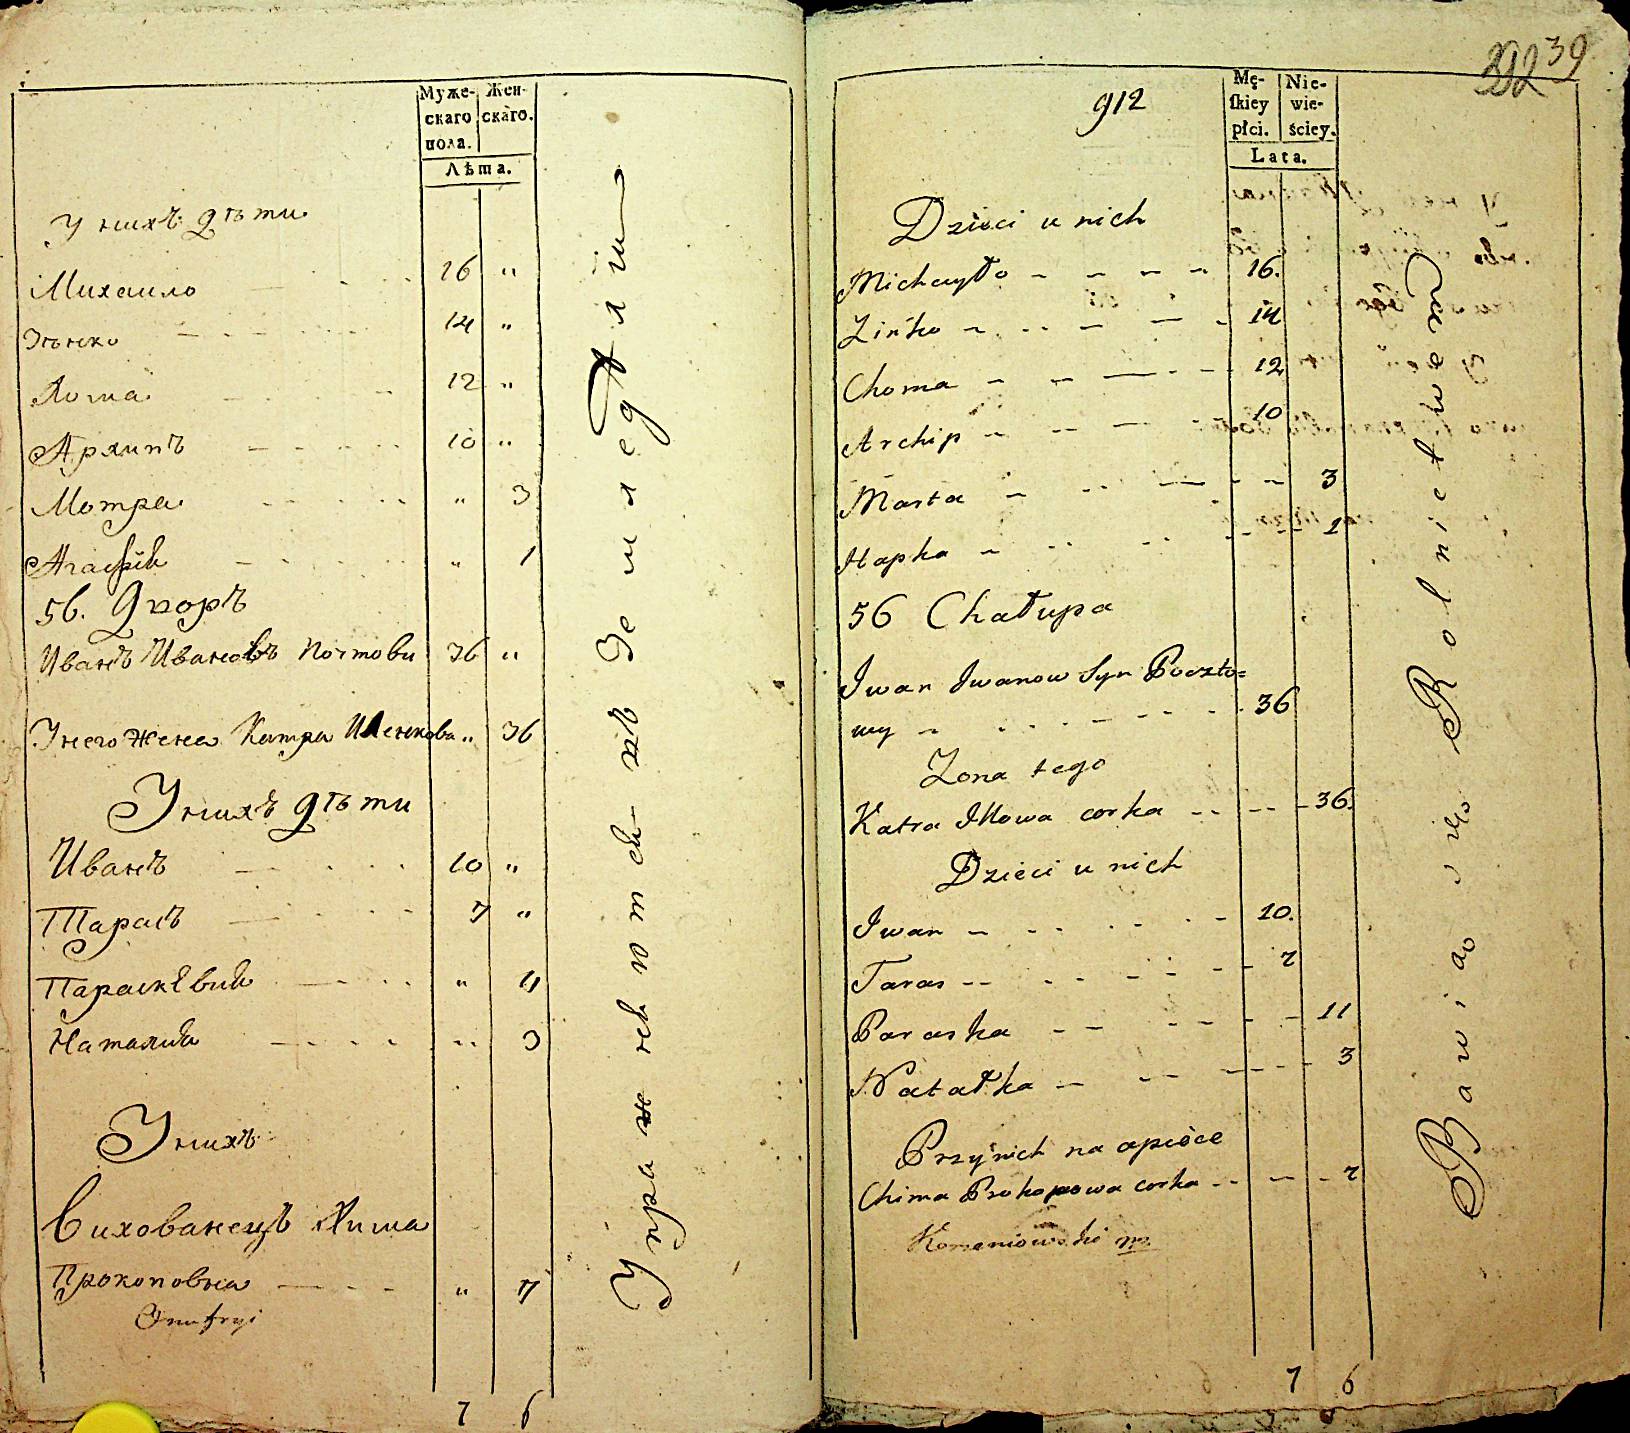 Муже-
скаго
пола.
Жен-
скаго.
Лѣта.
У нихъ дѣти
Михаило 16 "
Зѣнко 14 "
Хома 12 "
Архипъ 10 "
Мотра " 3
Агафія " 1
56. Дворъ
Иванъ Ивановъ Почтови 36 "
У него жена Катра " 36
У нихъ дѣти
Иванъ 10 "
Тарасъ 7 "
Параскѣвия " 11
Наталия " 3
У нихъ
Вихованецъ Хима
Прокоповна " 7
Onufryi
7 6
Упражняются въ Земледѣлии
39
912
Mę-
skiey
płci.
Nie-
wie-
ściey.
Lata.
Dzieci u nich
Michayło 16.
Zińko 14
Choma 12
Archip 10
Marta 3
Hapka 1
56 Chałupa
Iwan Iwanow Syn Poczto=
wy 36
Zona tego
Katra Illowa corka 36.
Dzieci u nich
Iwan 10.
Taras 7
Paraska 11
Natałka 3
Przy nich na opiece
Chima Prokopowa corka 7
7 6
Bawią się Rolnictwem